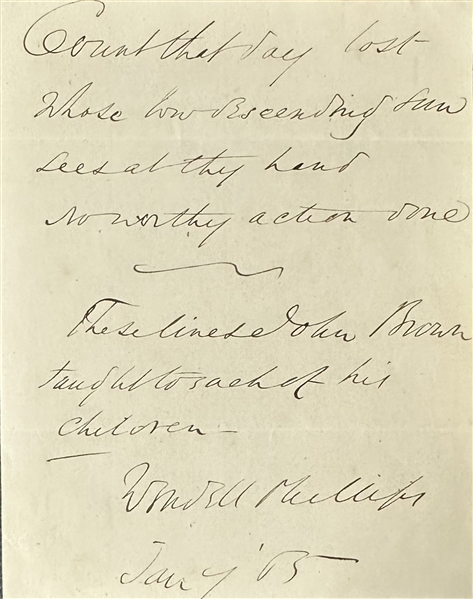 Count that day lost
Whose low descending sun
Sees at thy hand
No worthy action done
These lines John Brown
taught to each of his
children —
Wendell Phillips
Jany '65